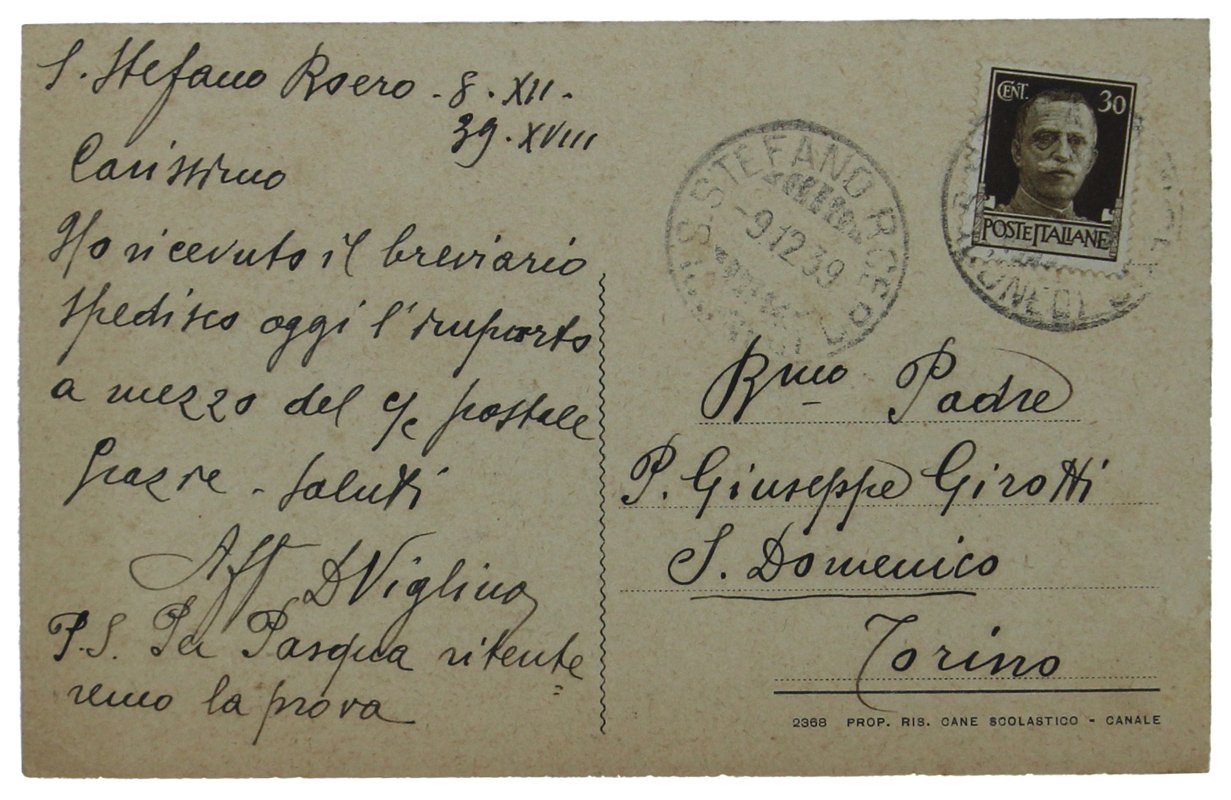 S. Stefano Roero - 8 - XII -
39 - XVIII
Carissimo
Ho ricevuto il breviario
spedisco oggi l'importo
a mezzo del c/c postale
Grazie - saluti
Aff D Viglino
P.S. Per Pasqua ritente=
remo la prova
CENT. 30
POSTE ITALIANE
S. STEFANO ROERO
-9.12.39
(CUNEO)
Rmo Padre
P. Giuseppe Girotti
S. Domenico
Torino
2368 PROP. RIS. CANE SCOLASTICO - CANALE